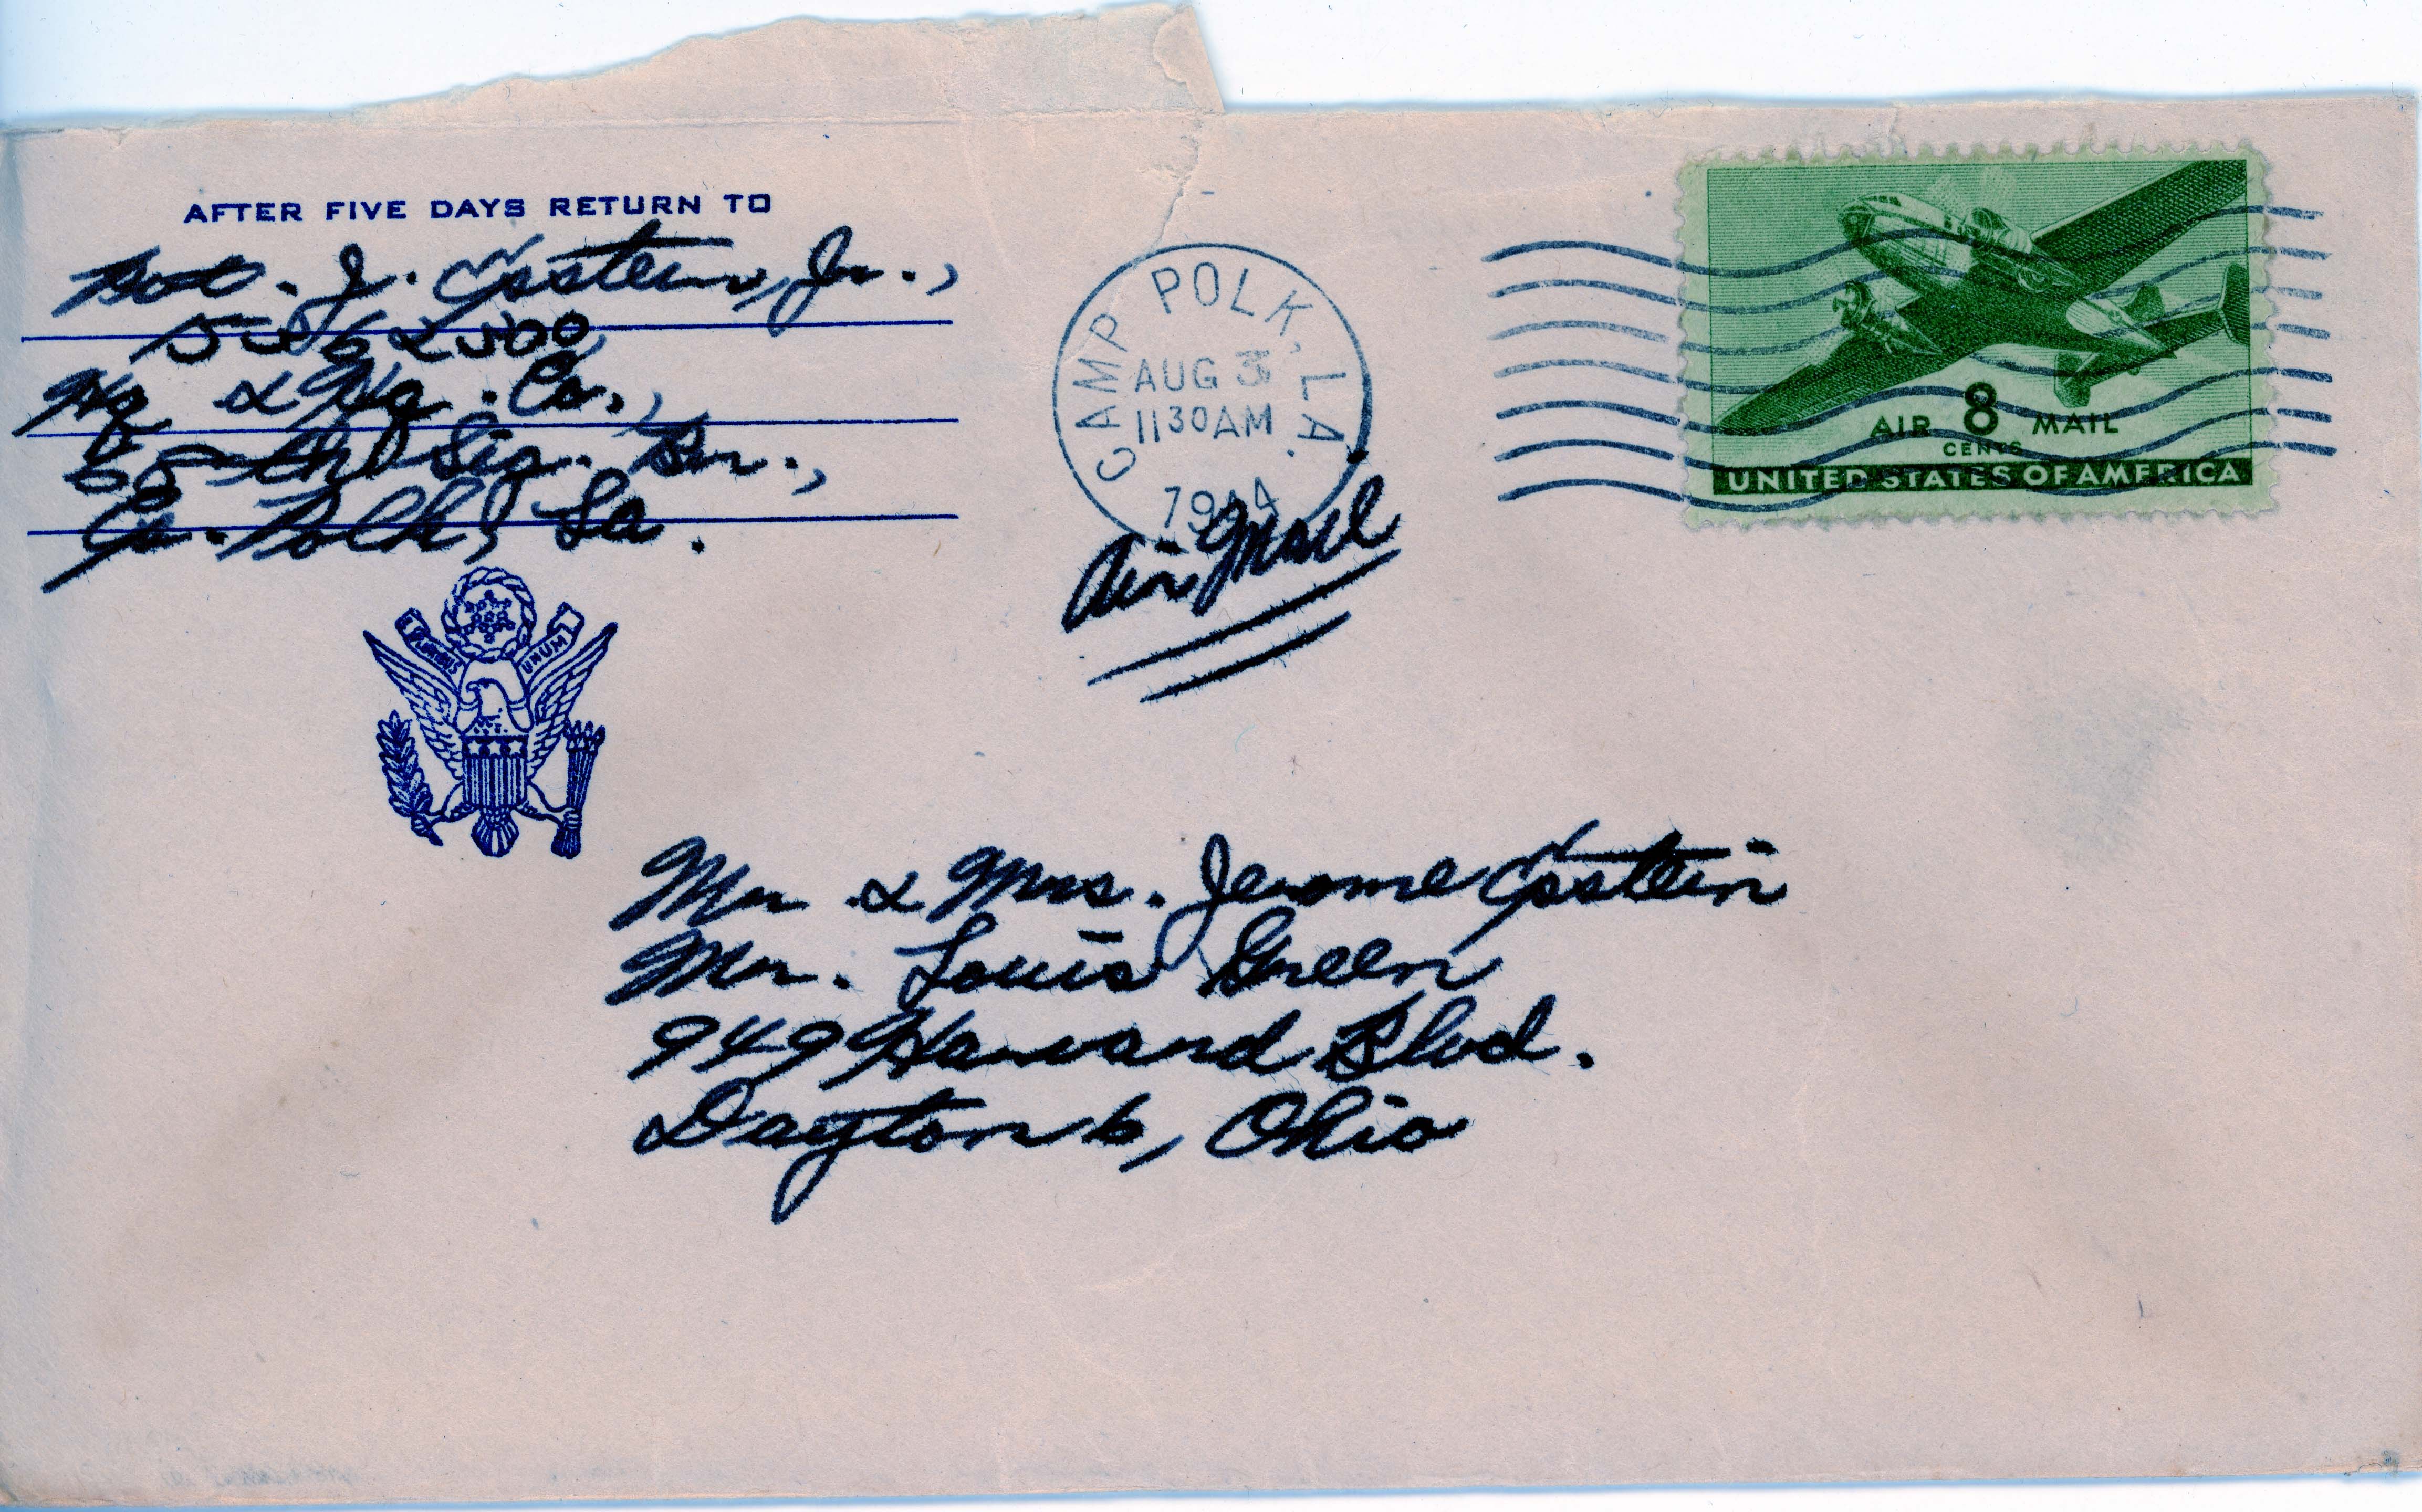 AFTER FIVE DAYS RETURN TO
Pvt. J. Epstein, Jr.,
Hq & Hq. Co.,
68th Sig. Bn.,
Ca. Polk, La.
CAMP POLK, LA.
AUG
1130AM
1944
Air Mail
AIR 8 MAIL
CENTS
UNITED STATES OF AMERICA
PLURIBUS UNUM
Mr & Mrs. Jerome Epstein
Mr. Louis Green
949 Harvard Blvd.
Dayton 6, Ohio